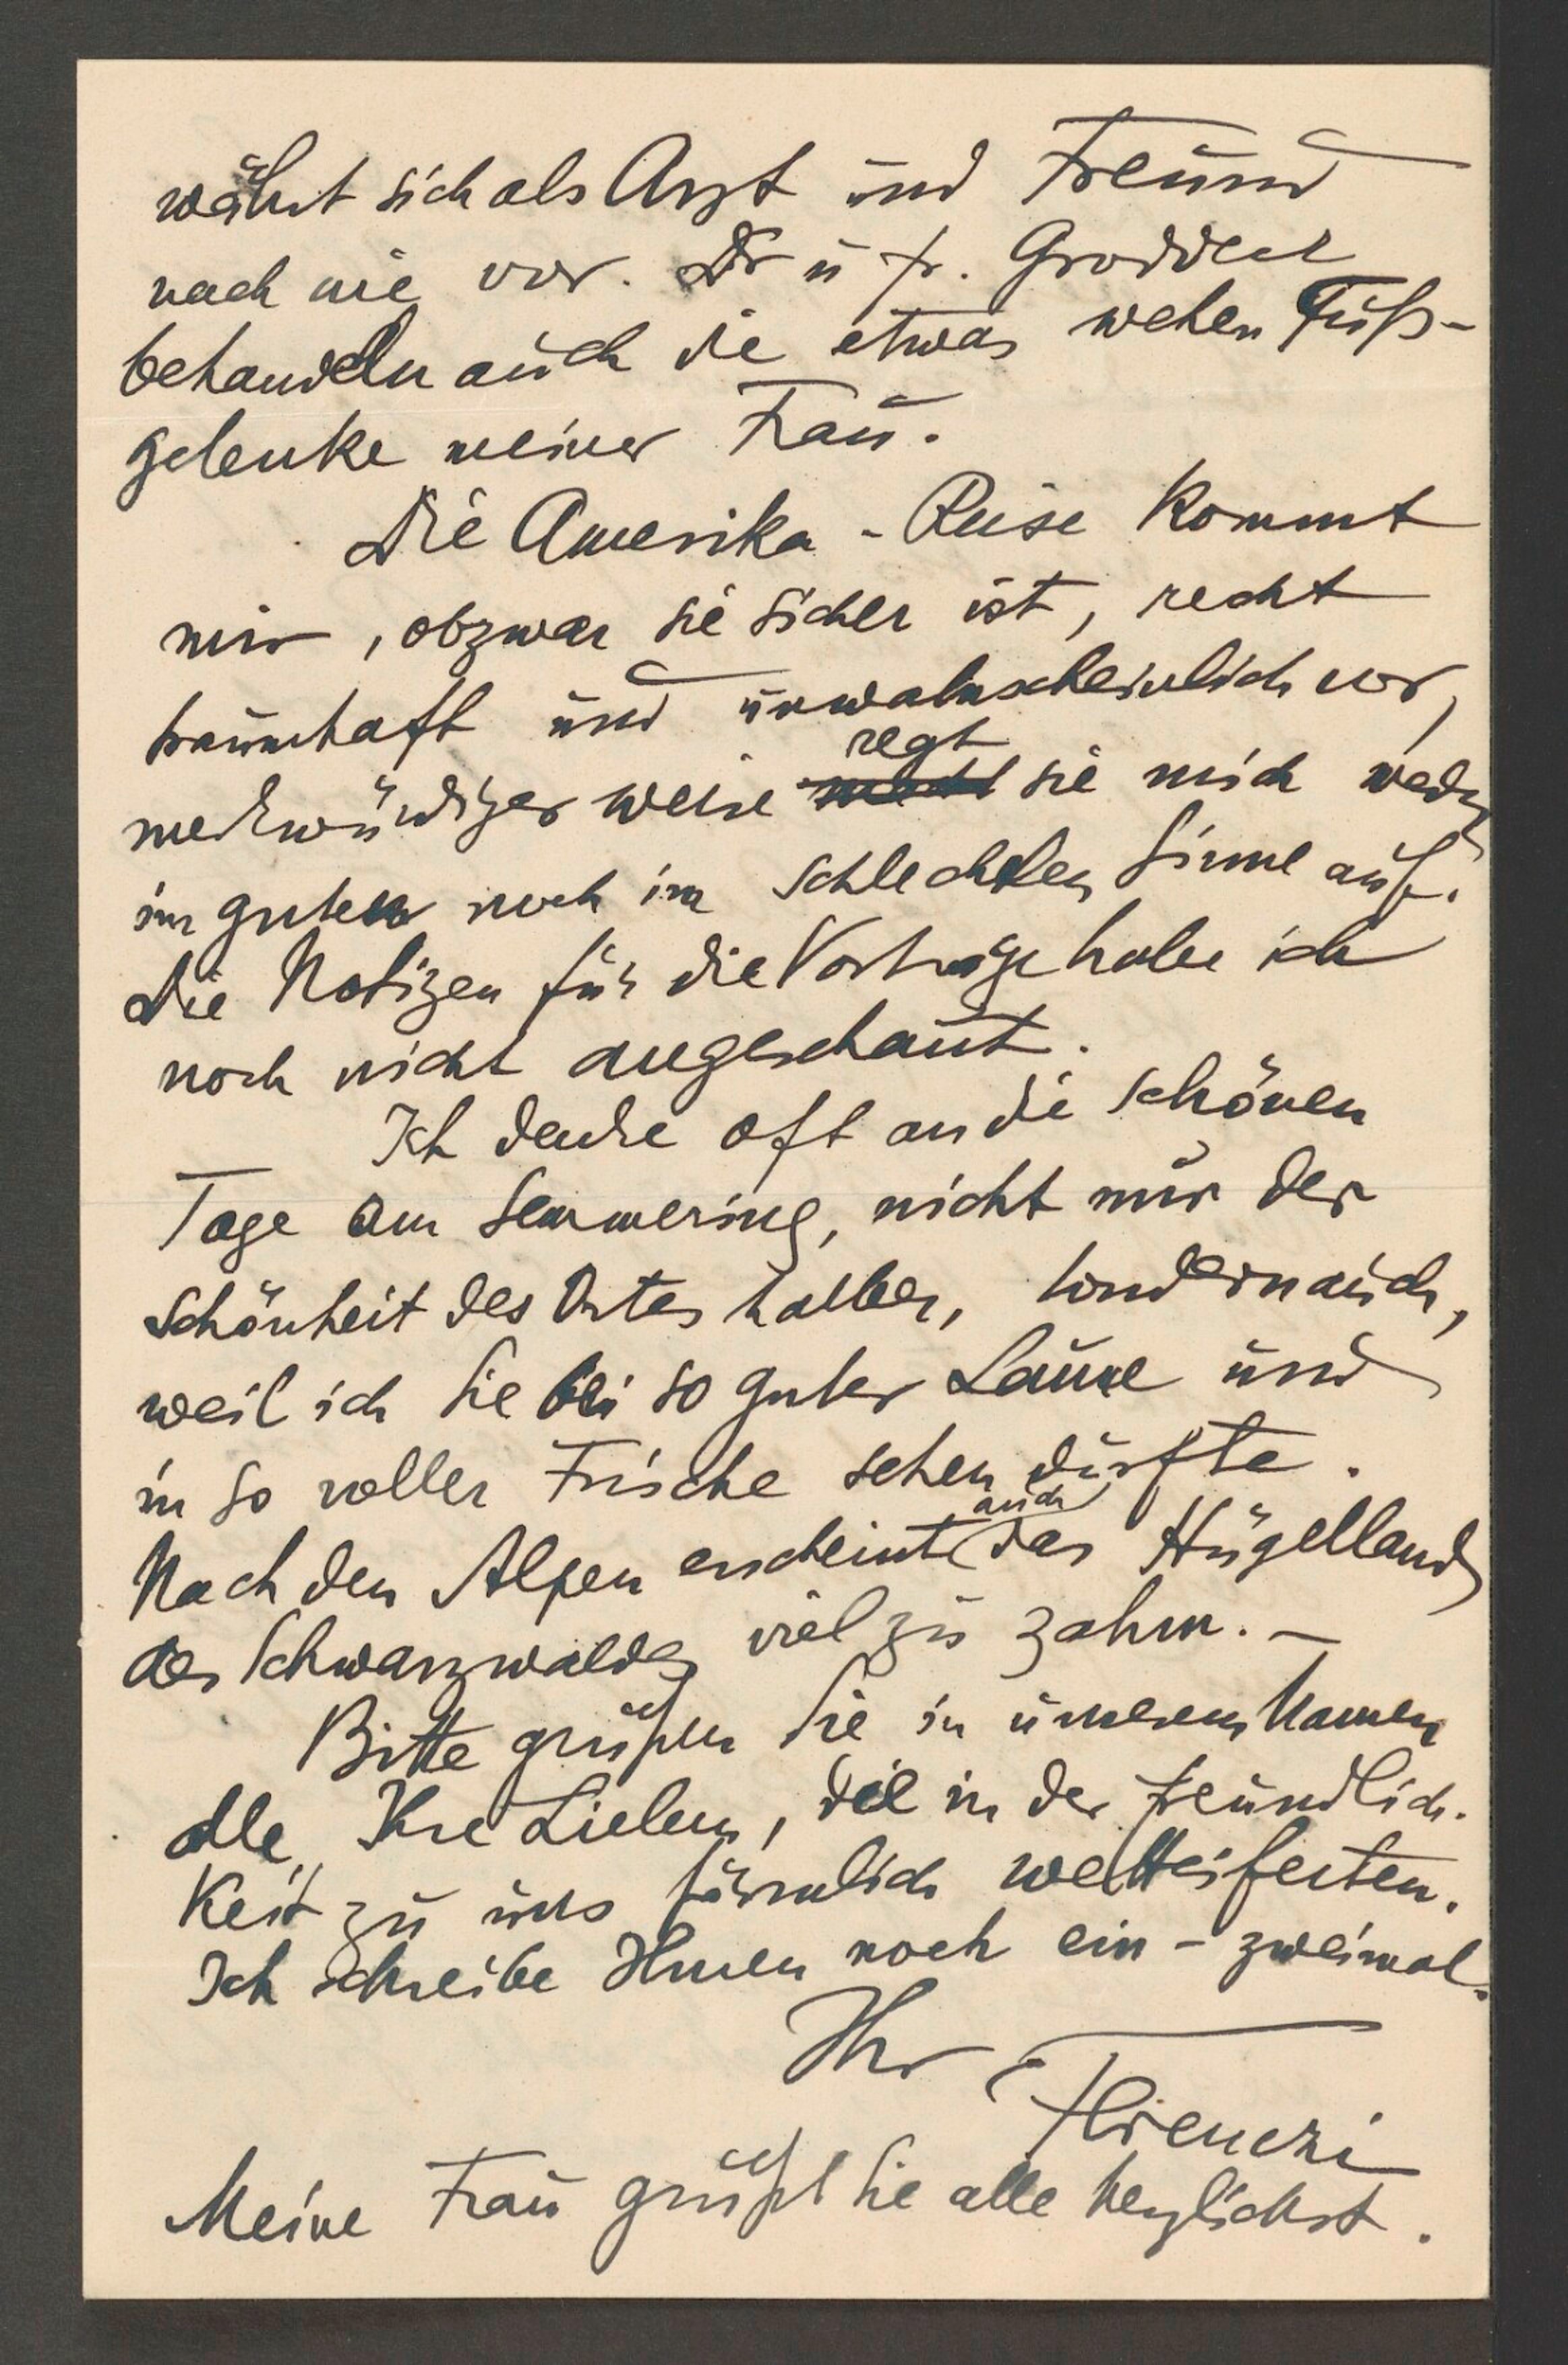 währt sich als Arzt und Freund
nach wie vor. Dr u Fr. Groddeck
behandeln auch die etwas wehen Fuß-
gelenke meiner Frau.
Die Amerika-Reise kommt
mir, obzwar sie sicher ist, recht
traumhaft und unwahrscheinlich vor,
merkwürdiger weise regt sie mich weder
im guten noch im schlechten Sinne auf.
Die Notizen für die Vorträge habe ich
noch nicht angeschaut.
Ich denke oft an die schönen
Tage am Semmering, nicht nur der
Schönheit des Ortes halber, sondern auch,
weil ich Sie bei so guter Laune und
in so voller Frische sehen durfte.
Nach den Alpen erscheint auch das Hügelland
des Schwarzwaldes viel zu zahm. –
Bitte grüßen Sie in unserem Namen
alle Ihre Lieben, die in der Freundlich-
keit zu uns förmlich wetteiferten.
Ich schreibe Ihnen noch ein-zweimal.
Ihr Ferenczi
Meine Frau grüßt Sie alle herzlichst.